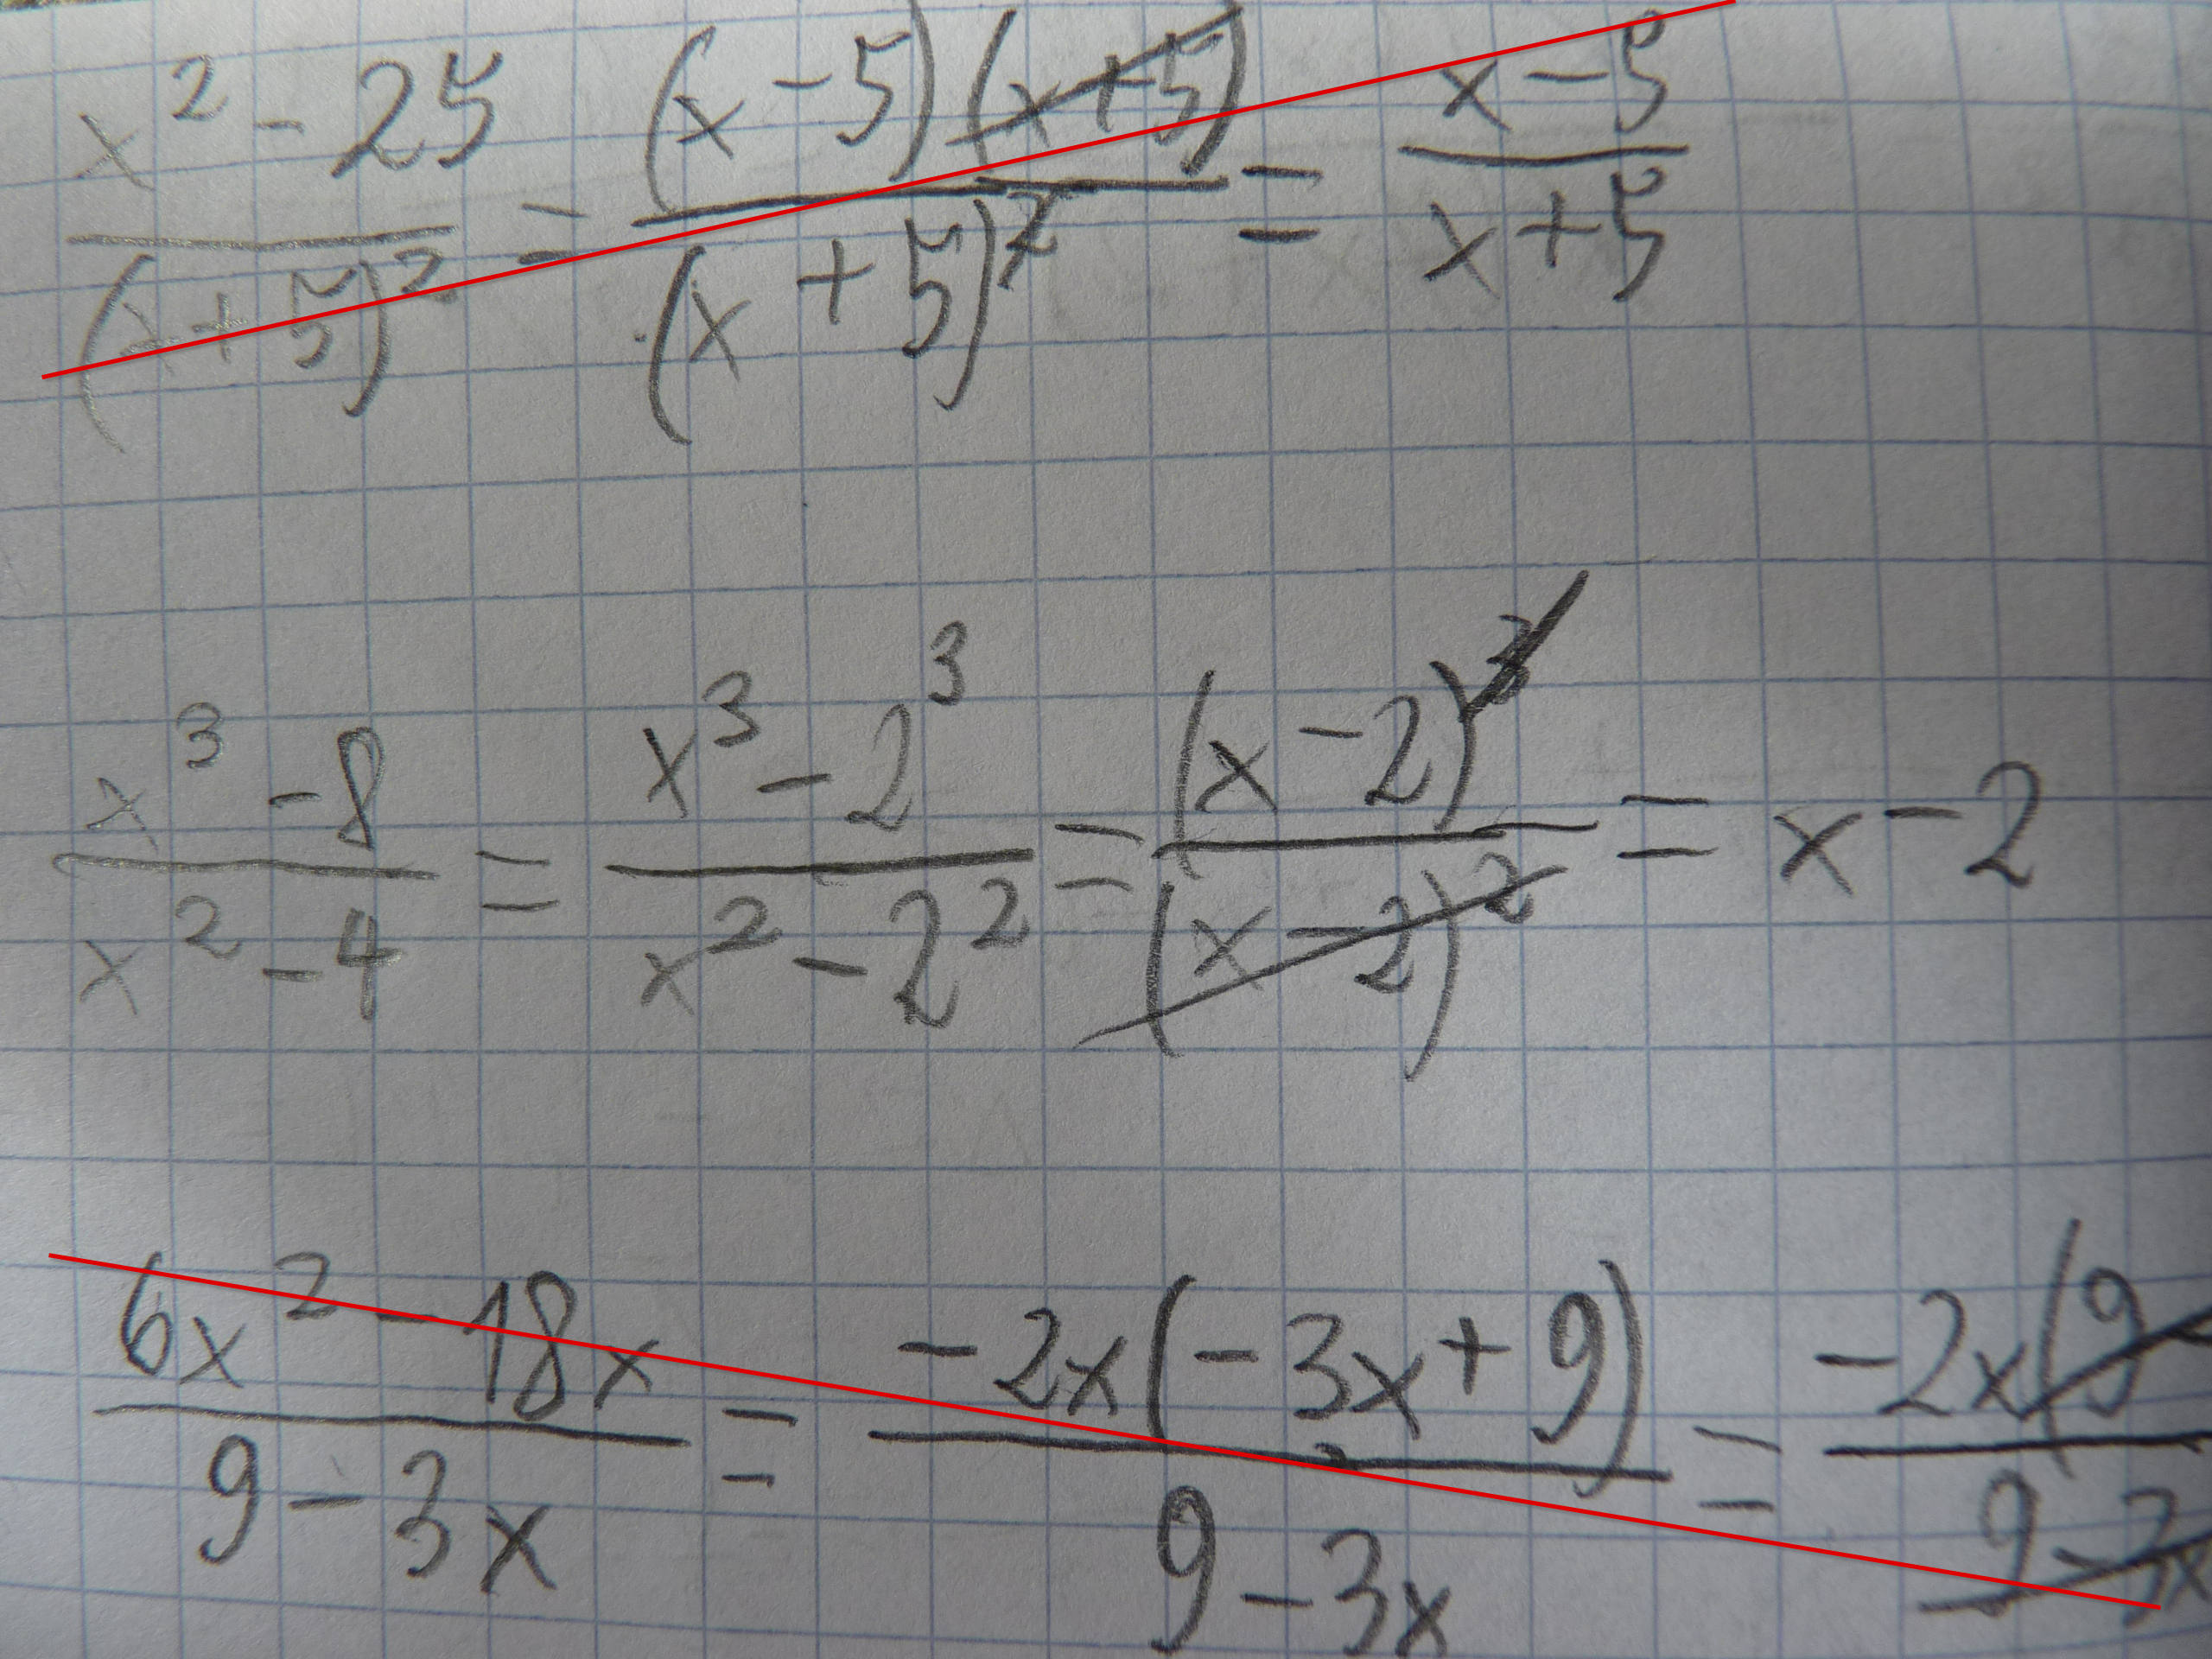 x² - 25 / (x + 5)² = (x - 5)(x + 5) / (x + 5)² = x - 5 / x + 5
x³ - 8 / x² - 4 = x³ - 2³ / x² - 2² = (x - 2)³ / (x - 2)² = x - 2
6x² - 18x / 9 - 3x = -2x(-3x + 9) / 9 - 3x = -2x(9 - / 9 - 3x